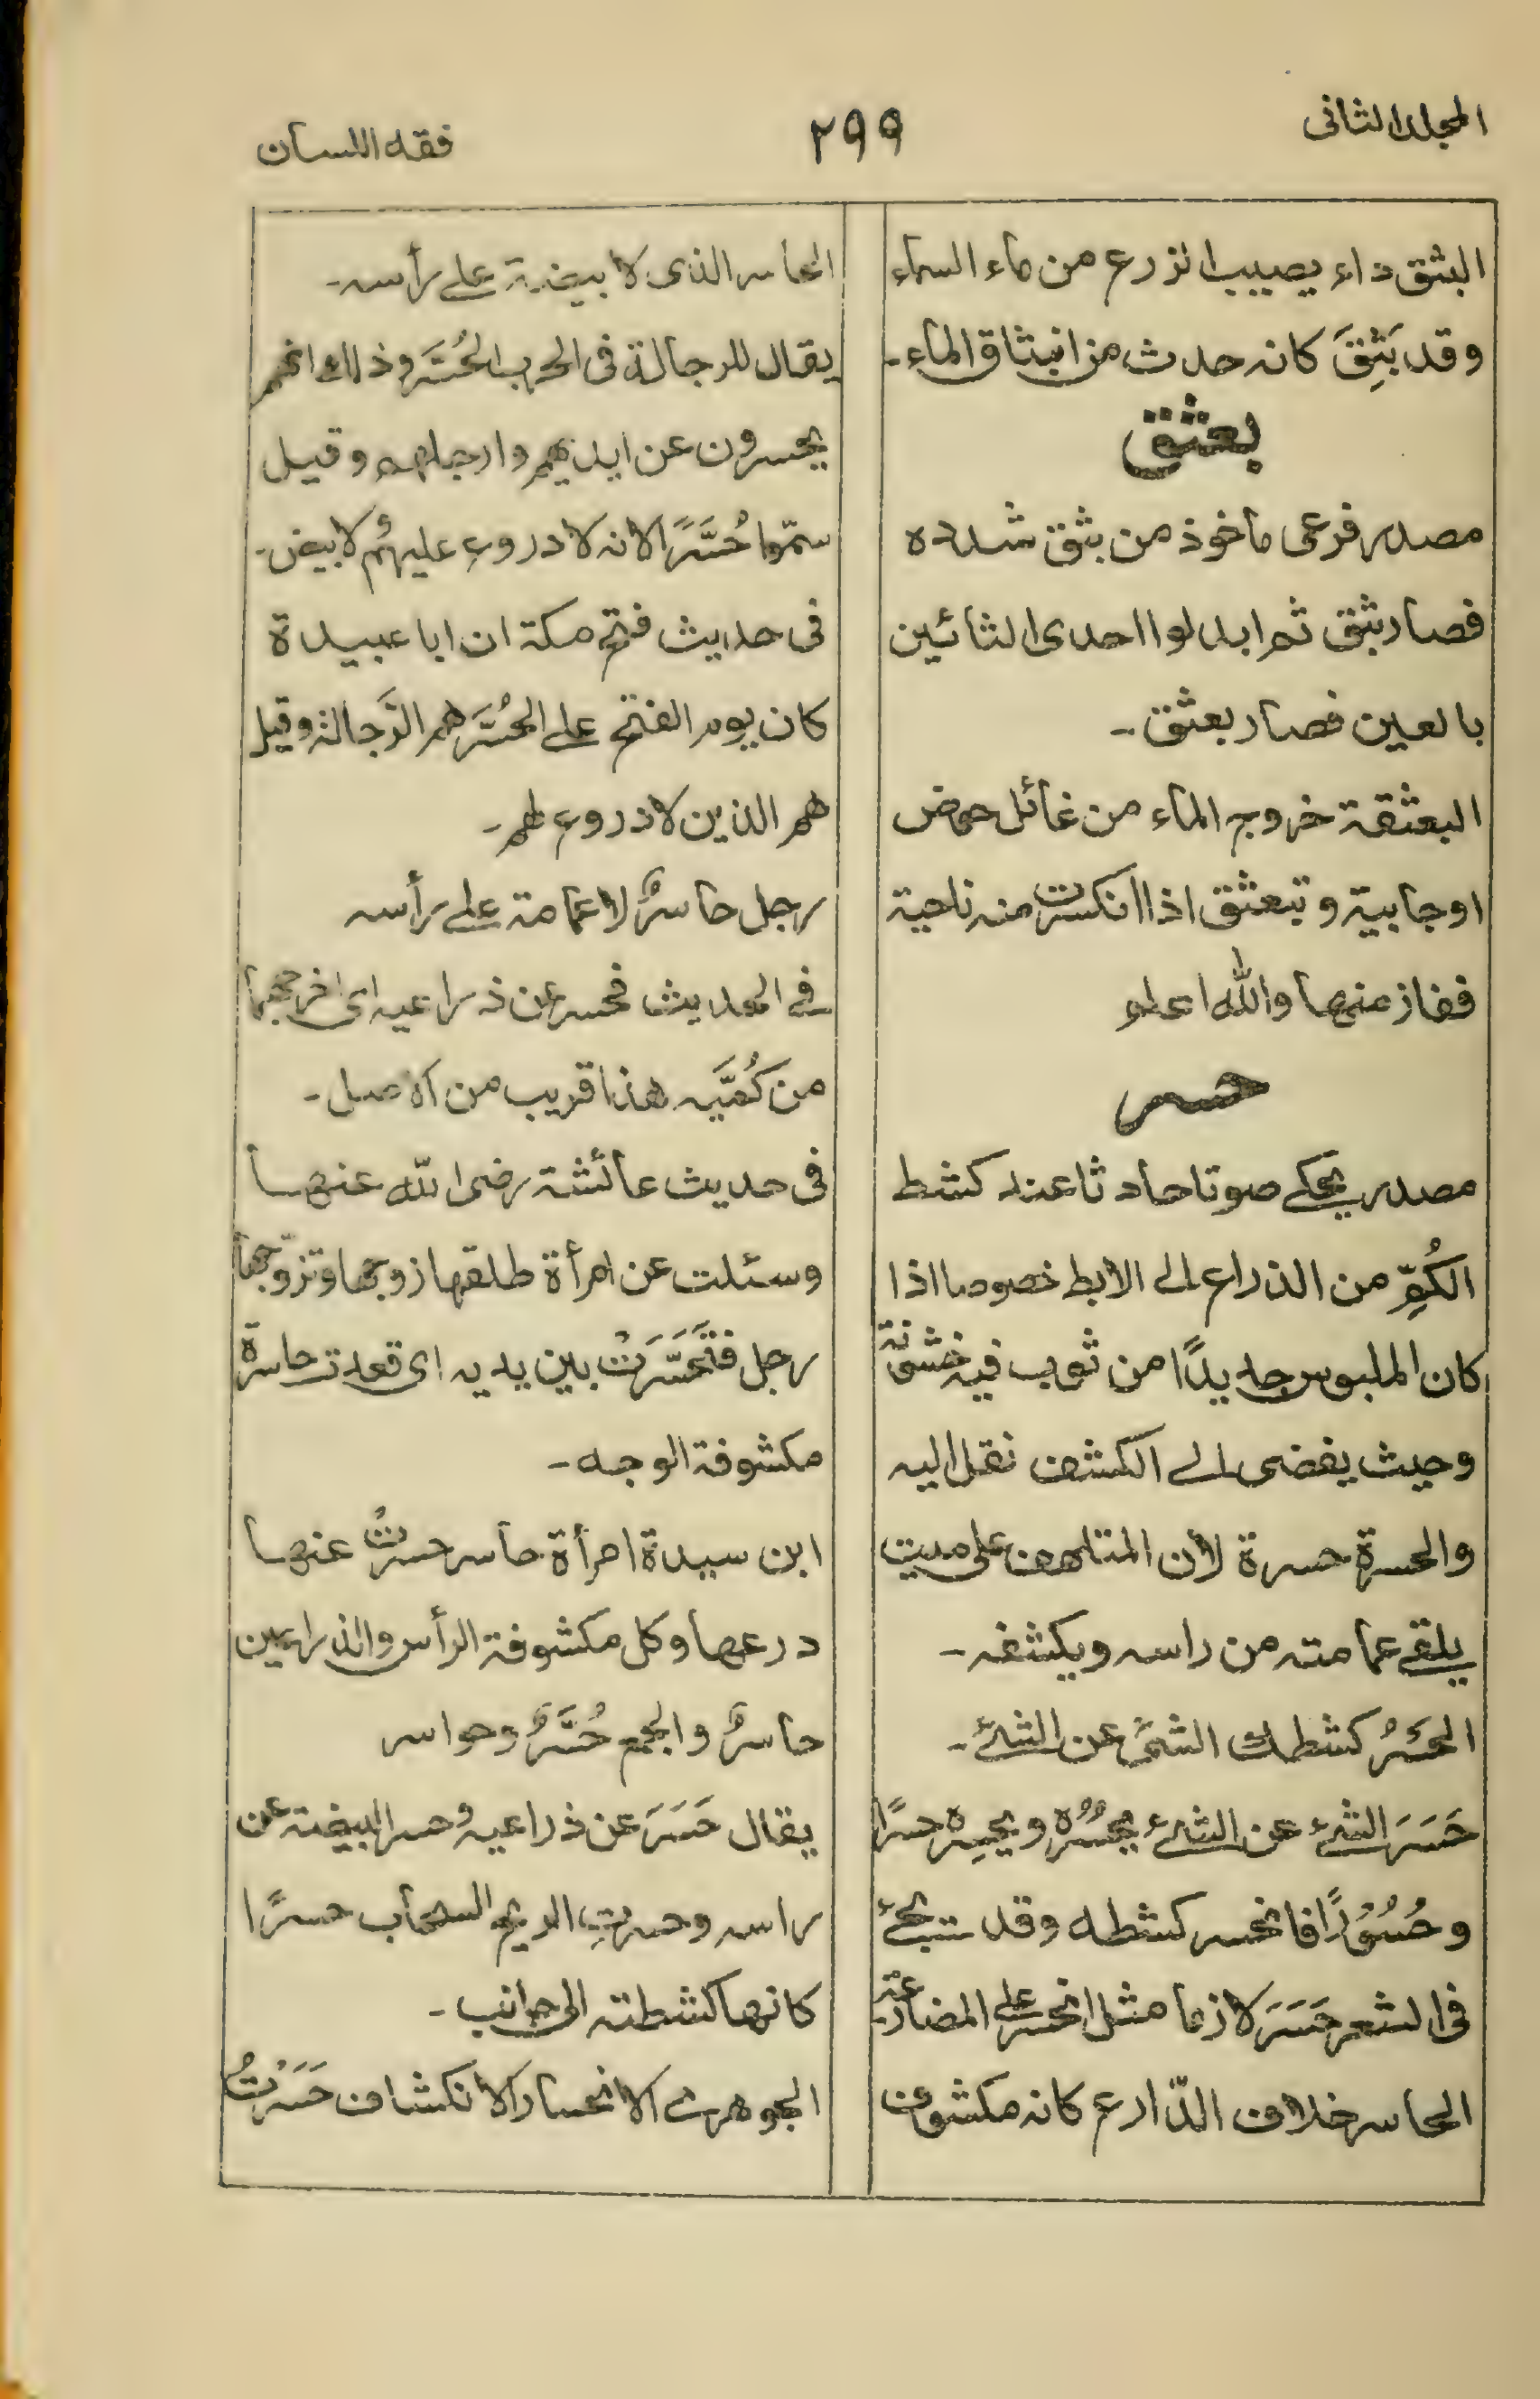 المجلد الثانى
٢٩٩
فقه اللسان
البثق داء يصيب الزرع من ماء السماء
وقد بَثِقَ كانه حدث من انبثاق الماء۔
بعثق
مصدر فرعى ماخوذ من بثق شددہ
فصار بثّق ثم ابدلوا احدى الثائين
بالعين فصار بعثق۔
البعثقة خروج الماء من غائل حوض
او جابية وتبعثق اذا انكسرت منه ناحية
ففاز منها والله اعلم
حسر
مصدر يحكى صوتا حادثا عند كشط
الكُمِّ من الذراع الى الابط خصوصا اذا
كان الملبوس جديدًا من ثوب فيه خشنة
وحيث يفضى الى الكشف نقل اليه
والحسرة حسرة لأن المتلهف على ميت
يلقى عمامته من راسه ويكشفه۔
الحَسْرُ كشطك الشئ عن الشئ۔
حَسَرَ الشئ عن الشئ يحسُرُه ويحسِره حسرًا
وحُسُوْرًا فانحسر كشطه وقد تجئ
فى الشعر حَسَرَ لازما مثل انحسر على المضارعة
الحاسر خلاف الدّارع كانه مكشوف
الحاسر الذى لا بيضة على رأسه۔
يقال للرجالة فى الحرب الحُسَّر وذلك انهم
يحسرون عن ايديهم وارجلهم وقيل
سمّوا حُسَّرًا لانه لا دروع عليهم ولا بيض۔
فى حديث فتح مكة ان ابا عبيدة
كان يوم الفتح على الحُسَّر هم الرَّجالة وقيل
هم الذين لا دروع لهم۔
رجل حاسرٌ لا عمامة على رأسه
فى الحديث فحسر عن ذراعيه اى اخرجهما
من كُمَّيه هذا قريب من الاصل۔
فى حديث عائشة رضى الله عنها
وسئلت عن امرأة طلقها زوجها وتزوّجها
رجل فتَحَسَّرَتْ بين يديه اى قعدت حاسرة
مكشوفة الوجه۔
ابن سيدة امرأة حاسر حسرتْ عنها
درعها وكل مكشوفة الرأس والذراعين
حاسرٌ والجمع حُسَّرٌ وحواسر
يقال حَسَرَ عن ذراعيه وحسر البيضة عن
راسه وحسرتِ الريح السحاب حسرًا
كانها كشطته الى جوانب۔
الجوهرى الانحسار الانكشاف حَسَرْتُ